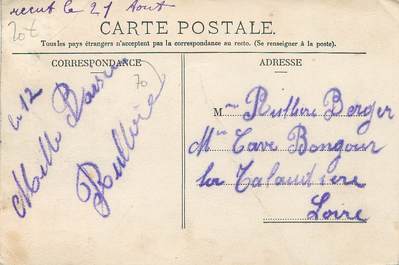 recut le 21 Aout
20€
CARTE POSTALE.
Tous les pays étrangers n'acceptent pas la correspondance au recto. (Se renseigner à la poste).
CORRESPONDANCE
le 12
Mille Baisers
Rullière
70
ADRESSE
M me Rullière Berger
M on Cave Bongour
la Talaudière
Loire